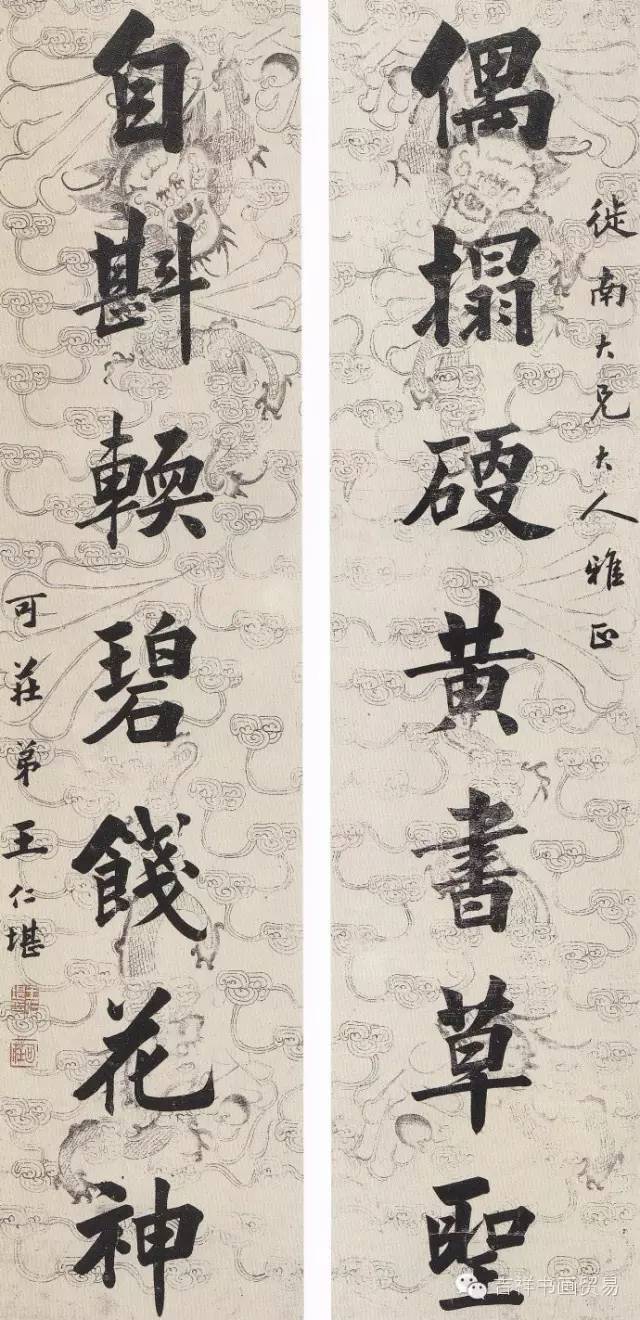 徙南大兄大人雅正
偶搨硬黄書草聖
自斟輭碧餞花神
可莊弟王仁堪
吉祥书画贸易